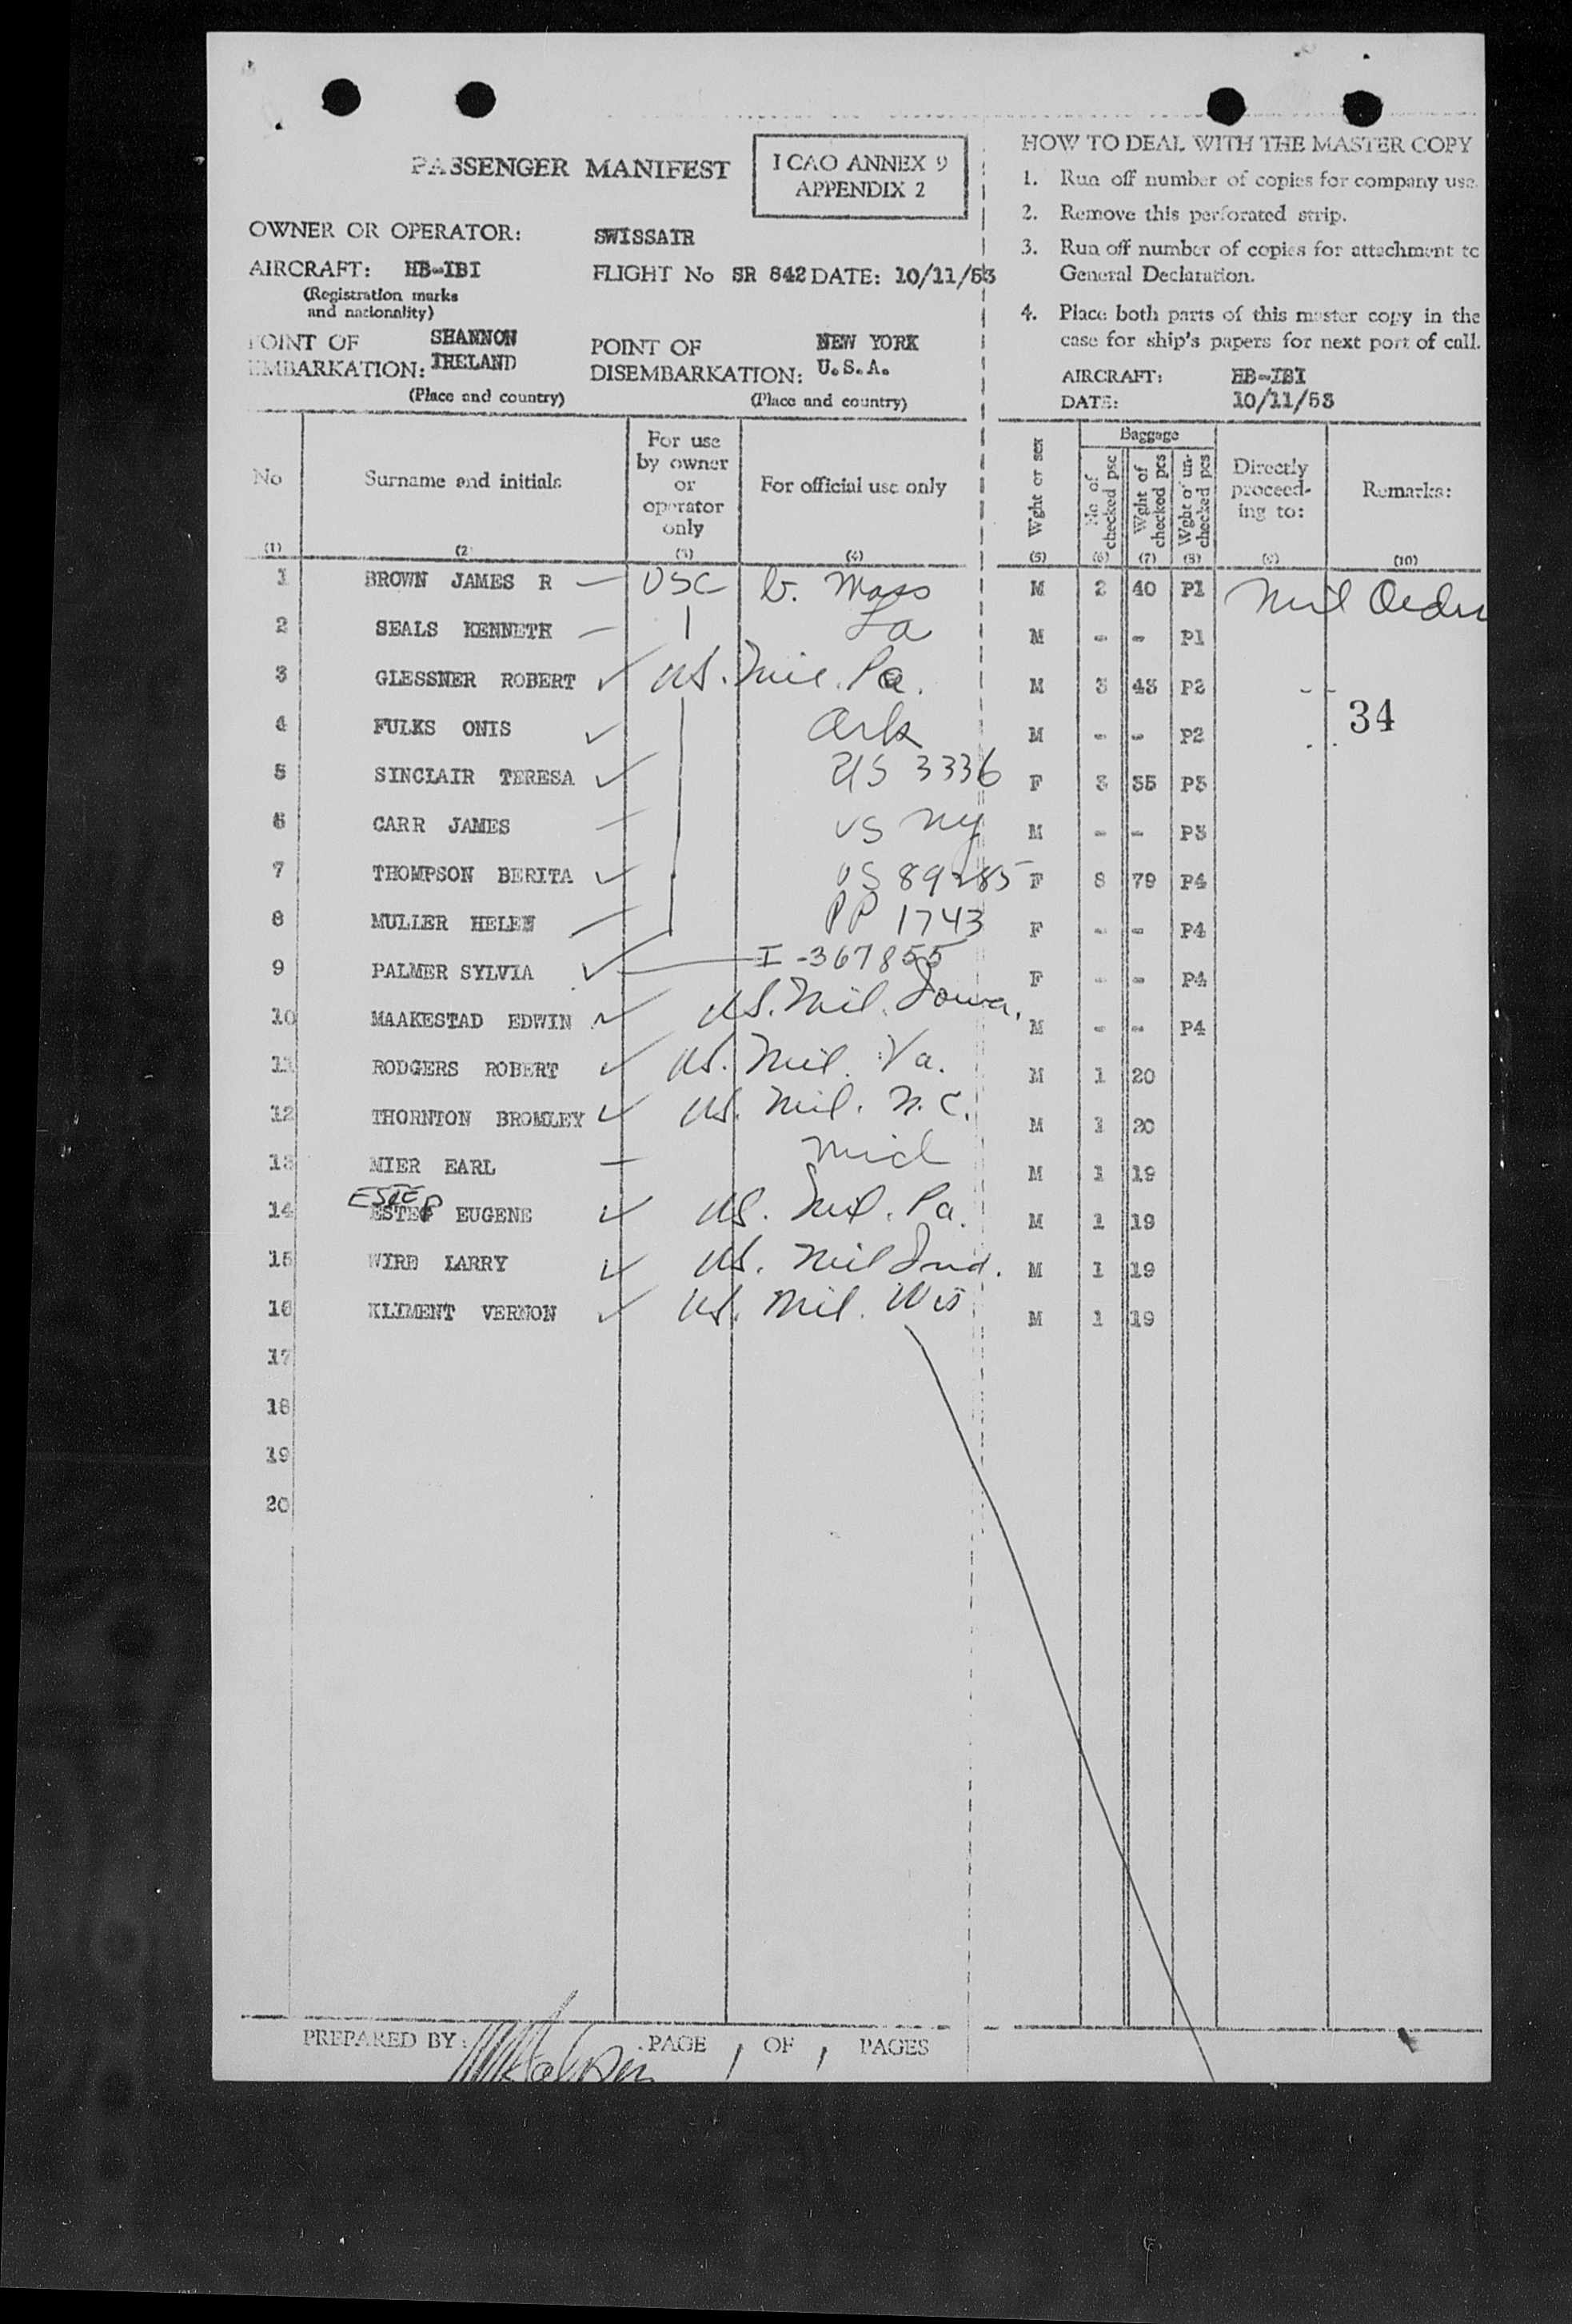 PASSENGER MANIFEST
ICAO ANNEX 9
APPENDIX 2
OWNER OR OPERATOR: SWISSAIR
AIRCRAFT: HB-IBI FLIGHT No SR 842 DATE: 10/11/53
(Registration marks
and nationality)
POINT OF SHANNON POINT OF NEW YORK
EMBARKATION: IRELAND DISEMBARKATION: U.S.A.
(Place and country) (Place and country)
HOW TO DEAL WITH THE MASTER COPY
1. Run off number of copies for company use.
2. Remove this perforated strip.
3. Run off number of copies for attachment to
General Declaration.
4. Place both parts of this master copy in the
case for ship's papers for next port of call.
AIRCRAFT: HB-IBI
DATE: 10/11/53
No Surname and initials For use by owner or operator only For official use only Wght or sex Baggage No of checked psc Wght of checked pcs Wght of un-checked pcs Directly proceed-ing to: Remarks:
(1) (2 (3) (4) (5) (6) (7) (8) (9) (10)
1 BROWN JAMES R — USC b. Mass M 2 40 P1 Mil Order
2 SEALS KENNETH — La M - - P1
3 GLESSNER ROBERT ✓ US. Mil. Pa. M 3 43 P2
34
4 FULKS ONIS ✓ Ark M - - P2
5 SINCLAIR TERESA ✓ US 3336 F 3 35 P3
6 CARR JAMES — US NY M - - P3
7 THOMPSON BERITA ✓ US 89285 F 8 79 P4
8 MULLER HELEN — PP 1743 F - - P4
9 PALMER SYLVIA ✓ I-367855 F - - P4
10 MAAKESTAD EDWIN ✓ US. Mil. Iowa. M - - P4
11 RODGERS ROBERT ✓ US. Mil. Va. M 1 20
12 THORNTON BROMLEY ✓ US. Mil. N.C. M 1 20
13 MIER EARL — Mich M 1 19
ESTEP
14 ESTEP EUGENE ✓ US. Mil. Pa. M 1 19
15 WIRE LARRY ✓ US. Mil Ind. M 1 19
16 KLIMENT VERNON ✓ US. Mil. Wis M 1 19
17
18
19
20
PREPARED BY: PAGE 1 OF 1 PAGES